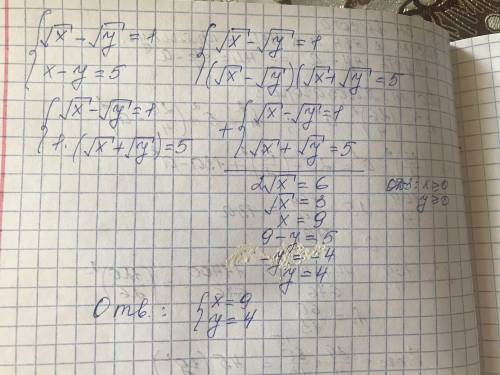 { √x - √y = 1
{ x - y = 5
{ √x - √y = 1
{ (√x - √y)(√x + √y = 5
{ √x - √y = 1
{ 1·(√x + √y) = 5
+ { √x - √y = 1
{ √x + √y = 5
2√x = 6
√x = 3
x = 9
9 - y = 5
- y = -4
y = 4
x ≥ 0
y ≥ 0
Отв.: { x = 9
{ y = 4